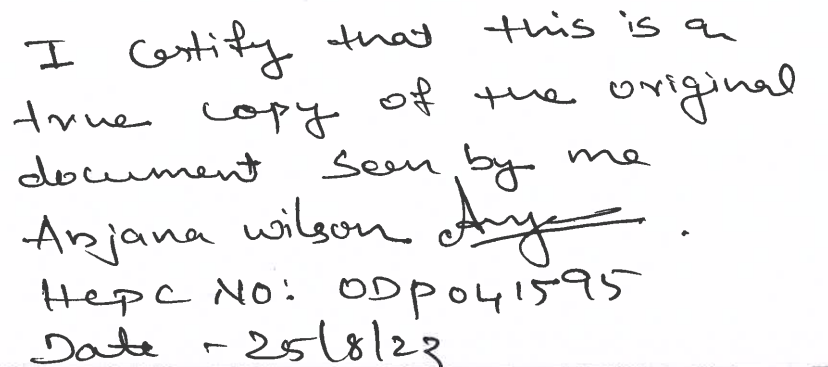 I Certify that this is a
true copy of the original
document seen by me
Anjana wilson
Hcpc NO: ODP041595
Date - 25/8/23